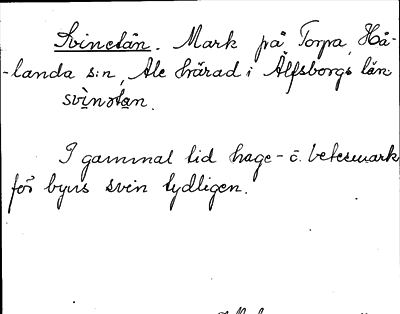 Svinetån. Mark på Torpa, Hå-
-landa s:n, Ale härad i Älfsborgs län
svinətan.
I gammal tid hage- o. betesmark
för byns svin tydligen.